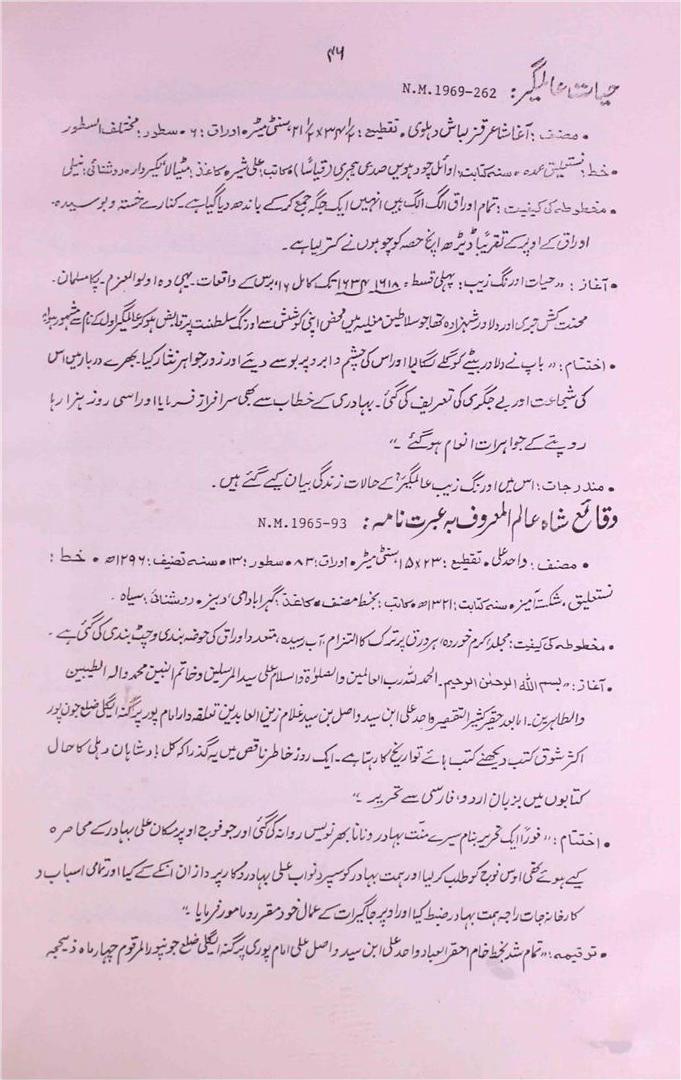 ۴۶
حیات عالمگیر: N.M.1969-262
• مصنف: آغا شاعر قزلباش دہلوی • تقطیع: ۳۴x۲۱ سنٹی میٹر • اوراق: ۶ • سطور: مختلف السطور
• خط: نستعلیق عمدہ • سنہ کتابت: اوائل چودہویں صدی ہجری (قیاساً) • کاتب: علی شیر • کاغذ: مٹیالا لکیردار • روشنائی: نیلی
• مخطوطہ کی کیفیت: تمام اوراق الگ الگ ہیں انہیں ایک جگہ جمع کر کے باندھ دیا گیا ہے۔ کنارے خستہ و بوسیدہ۔
اوراق کے اوپر کے تقریباً ڈیڑھ انچ حصہ کو چوہوں نے کتر لیا ہے۔
• آغاز: "حیات اورنگ زیب: پہلی قسط ۱۶۱۸ء ۱۶۳۴ء تک کامل ۱۶ برس کے واقعات۔ یہی وہ اولوالعزم۔ پکا مسلمان۔
محنت کش جری اور دلاور شہزادہ تھا جو سلاطین مغلیہ میں محض اپنی کوشش سے اورنگ سلطنت پر قابض ہو کر عالمگیر اول کے نام سے مشہور ہوا"
• اختتام: "باپ نے دلاور بیٹے کو گلے لگا لیا اور اس کی چشم و ابرو پر بوسے دیئے اور زور جواہر نثار کیا۔ بھرے دربار میں اس
کی شجاعت اور بے جگری کی تعریف کی گئی۔ بہادری کے خطاب سے بھی سرافراز فرمایا اور اسی روز ہزارہا
روپئے کے جواہرات انعام ہو گئے۔"
• مندرجات: اس میں اورنگ زیب عالمگیرؒ کے حالات زندگی بیان کیے گئے ہیں۔
وقائع شاہ عالم المعروف بہ عبرت نامہ: N.M.1965-93
• مصنف: واحد علی • تقطیع: ۲۳x۱۵ سنٹی میٹر • اوراق: ۸۳ • سطور: ۱۳ • سنہ تصنیف: ۱۲۹۶ھ • خط:
نستعلیق، شکستہ آمیز • سنہ کتابت: ۱۳۲۱ھ • کاتب: بخط مصنف • کاغذ: گہرا بادامی دبیز • روشنائی: سیاہ۔
• مخطوطہ کی کیفیت: مجلد اکرم خوردہ، ہر ورق پر ترک کا التزام، آب رسیدہ، متعدد اوراق کی حوضہ بندی و چٹ بندی کی گئی ہے۔
• آغاز: "بسم اللہ الرحمٰن الرحیم۔ الحمد للہ رب العالمین والصلوٰۃ والسلام علی سید المرسلین و خاتم النبین محمد والہ الطیبین
والطاہرین۔ اما بعد حقیر کثیر التقصیر واحد علی ابن سید واصل بن سید غلام زین العابدین تعلقہ دار امام پور پرگنہ انگلی ضلع جون پور
اکثر شوق کتب دیکھنے کتب ہائے تواریخ کا رہتا ہے۔ ایک روز خاطر ناقص میں یہ گذرا کہ کل بادشاہان دہلی کا حال
کتابوں میں بزبان اردو، فارسی سے تحریر۔"
• اختتام: "فوراً ایک تحریر بنام میرے منّت بہادر و نانا بھرنویس روانہ کی گئی اور جو فوج اوپر مکان علی بہادر کے محاصرہ
کیے ہوئے تھی اوس فوج کو طلب کر لیا اور ہمت بہادر کو سپرد نواب علی بہادر و کارپردازان انکے کے کیا اور تمامی اسباب و
کارخانہ جات راجہ ہمت بہادر ضبط کیا اور اوپر جاگیرات کے عمال خود مقرر و مامور فرمایا۔"
• ترقیمہ: "تمام شد بخط خام احقر العباد واحد علی ابن سید واصل علی امام پوری پرگنہ انگلی ضلع جونپور المرقوم چہار ماہ ذیحجہ